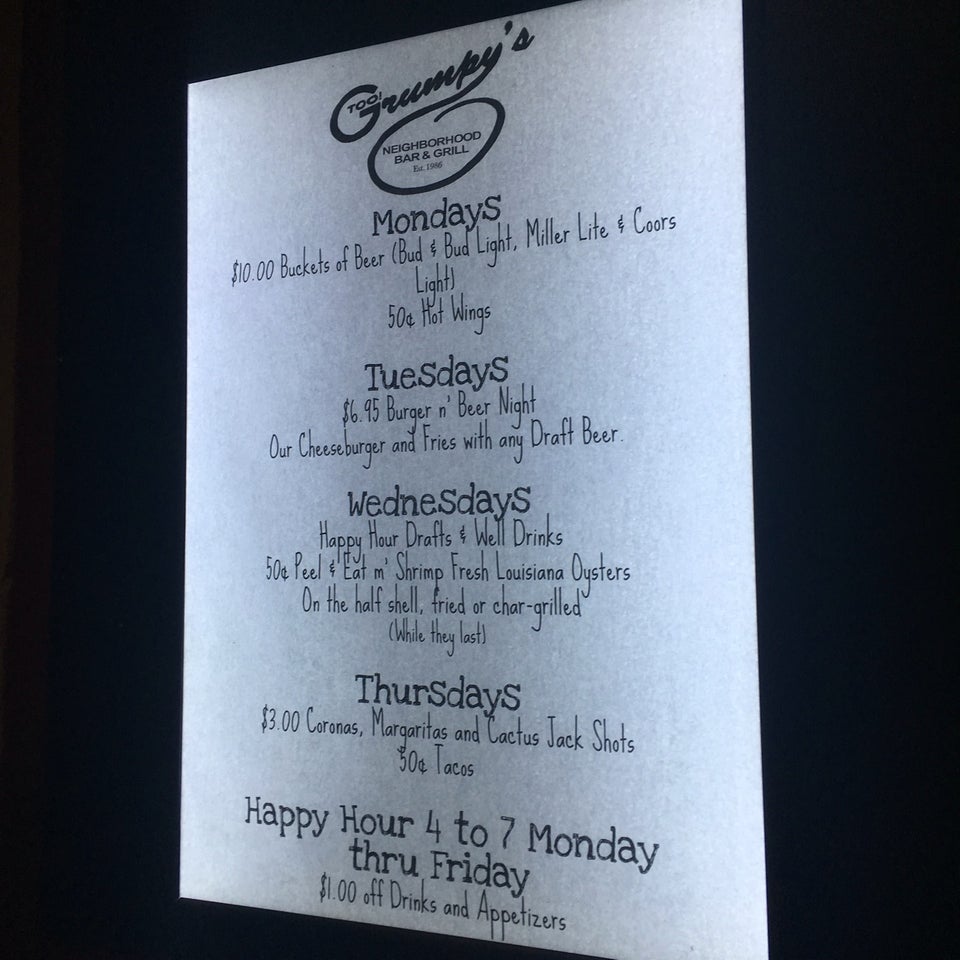 Grumpy's
TOO!
NEIGHBORHOOD
BAR & GRILL
Est. 1986
Mondays
$10.00 Buckets of Beer (Bud & Bud Light, Miller Lite & Coors
Light)
50¢ Hot Wings
Tuesdays
$6.95 Burger n' Beer Night
Our Cheeseburger and Fries with any Draft Beer.
Wednesdays
Happy Hour Drafts & Well Drinks
50¢ Peel & Eat m' Shrimp Fresh Louisiana Oysters
On the half shell, fried or char-grilled
(While they last)
Thursdays
$3.00 Coronas, Margaritas and Cactus Jack Shots
50¢ Tacos
Happy Hour 4 to 7 Monday
thru Friday
$1.00 off Drinks and Appetizers